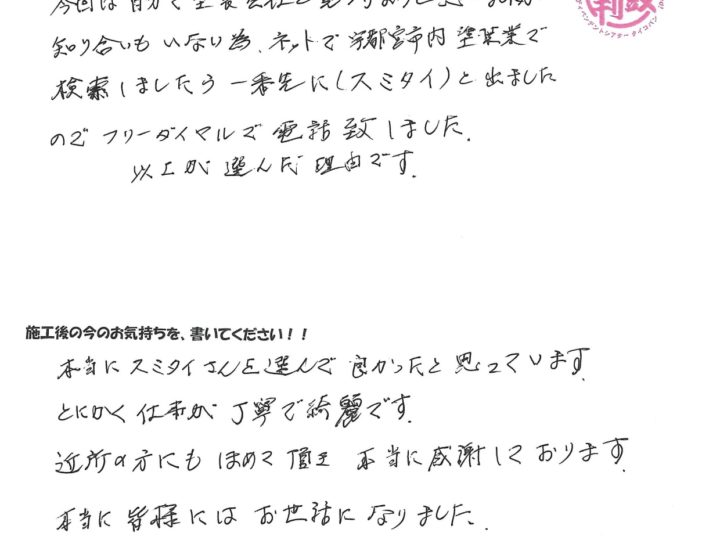 今回は自分で塗装会社を見つけようと思
知り合いもいない為、ネットで宇都宮市内塗装業で
検索しましたら一番先に(スミタイ)と出ました
のでフリーダイヤルで電話致しました。
以上が選んだ理由です。
施工後の今のお気持ちを、書いてください!!
本当にスミタイさんを選んで良かったと思っています。
とにかく仕事が丁寧で綺麗です。
近所の方にもほめて頂き本当に感謝しております。
本当に皆様にはお世話になりました。